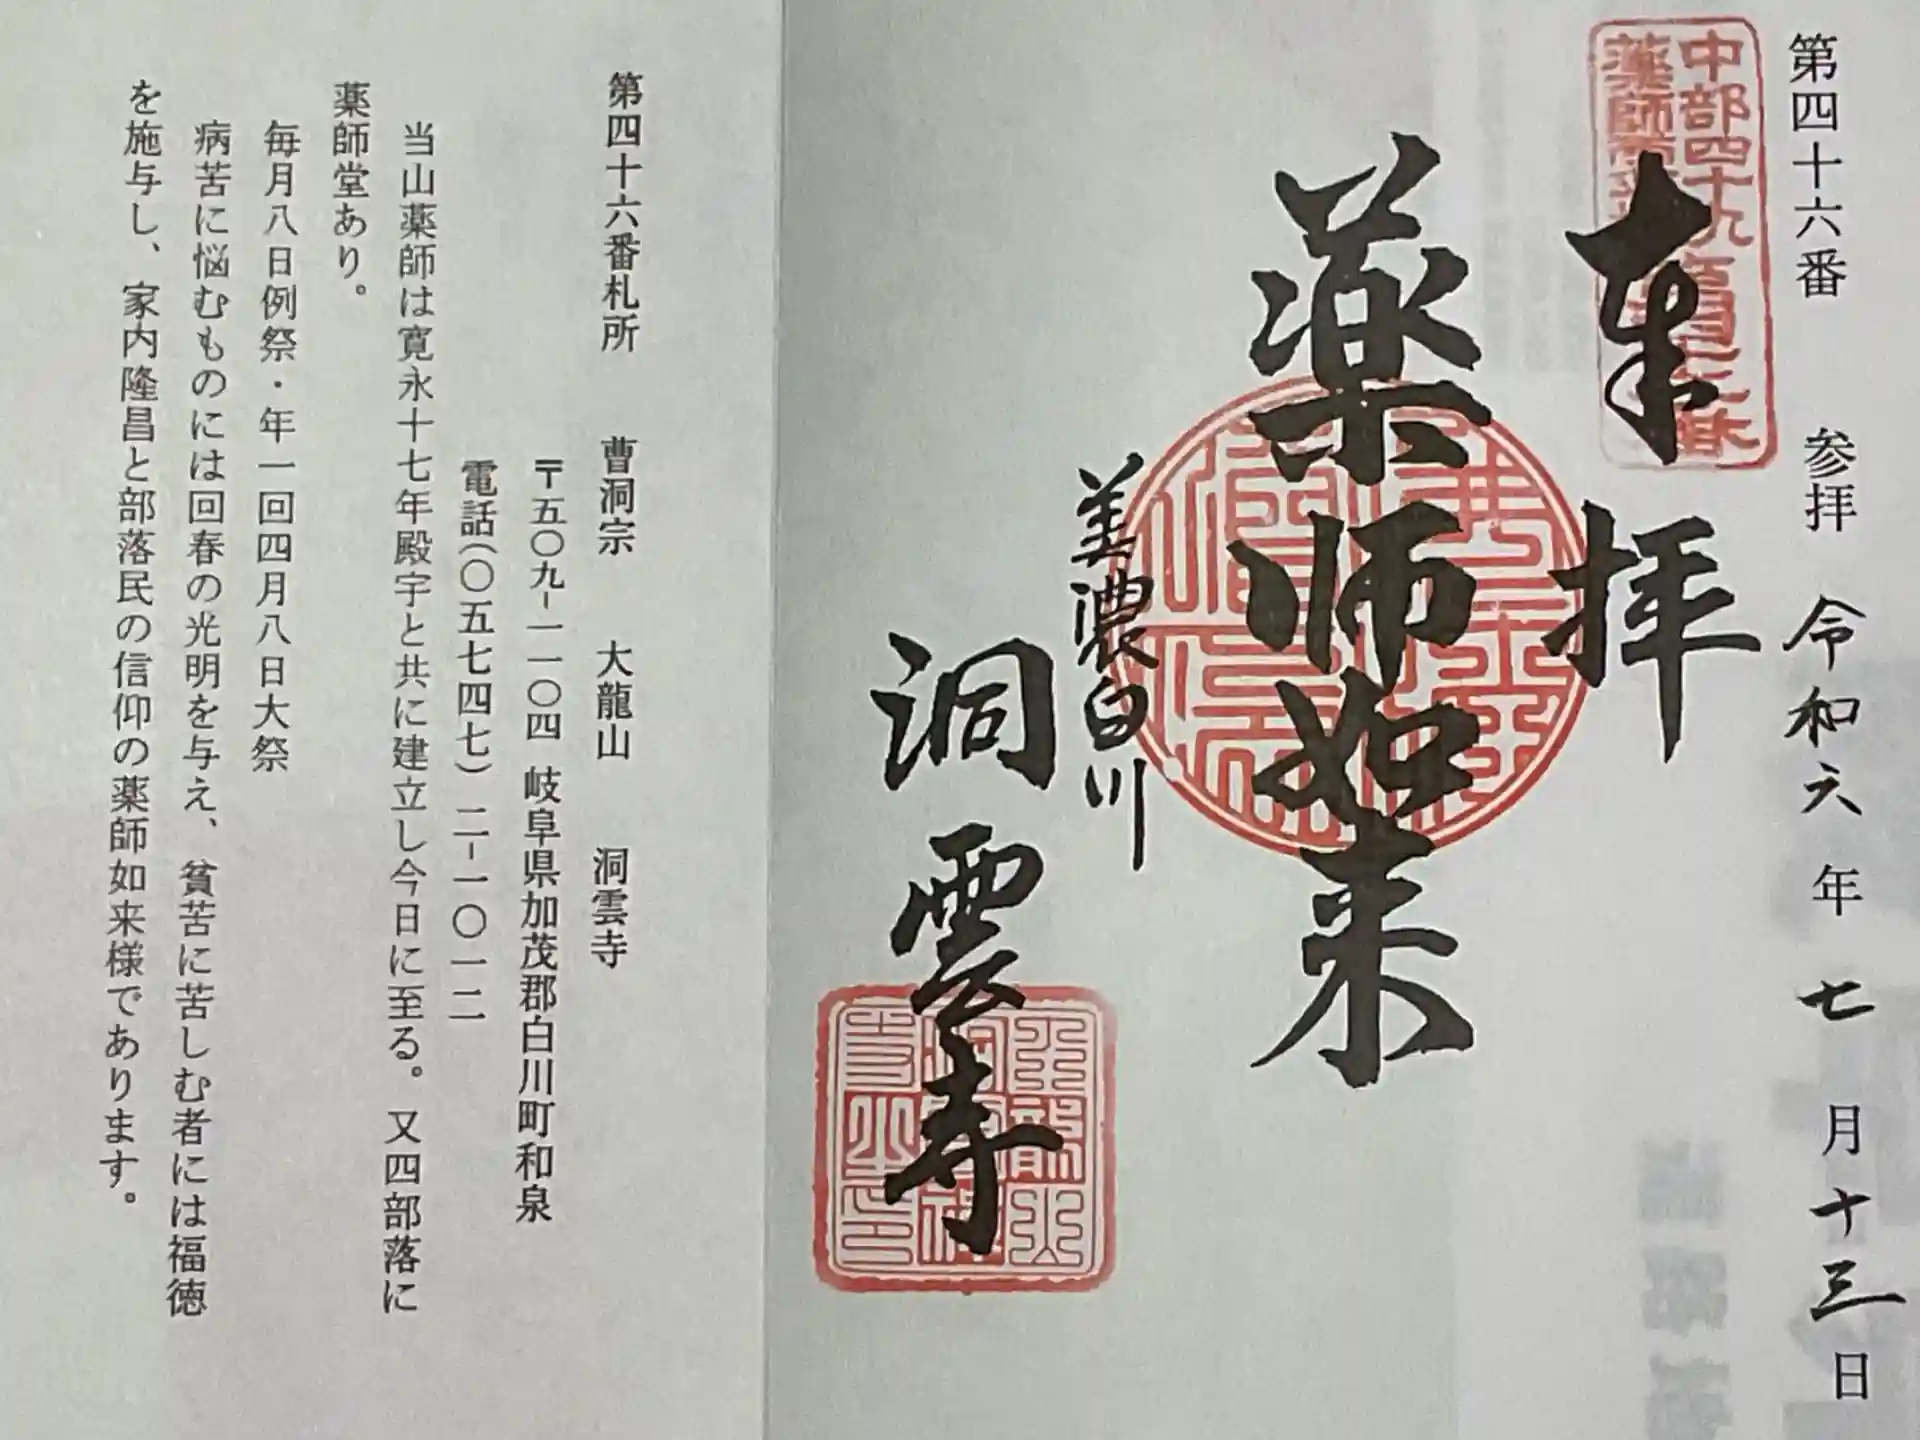 第四十六番 参拝 令和六年 七月十三日
中部四十九
薬師
奉拝
薬师如来
美濃白川
洞雲寺
第四十六番札所 曹洞宗 大龍山 洞雲寺
〒五〇九-一一〇四 岐阜県加茂郡白川町和泉
電話(〇五七四七)二-一〇一二
当山薬師は寛永十七年殿宇と共に建立し今日に至る。又四部落に
薬師堂あり。
毎月八日例祭・年一回四月八日大祭
病苦に悩むものには回春の光明を与え、貧苦に苦しむ者には福徳
を施与し、家内隆昌と部落民の信仰の薬師如来様であります。